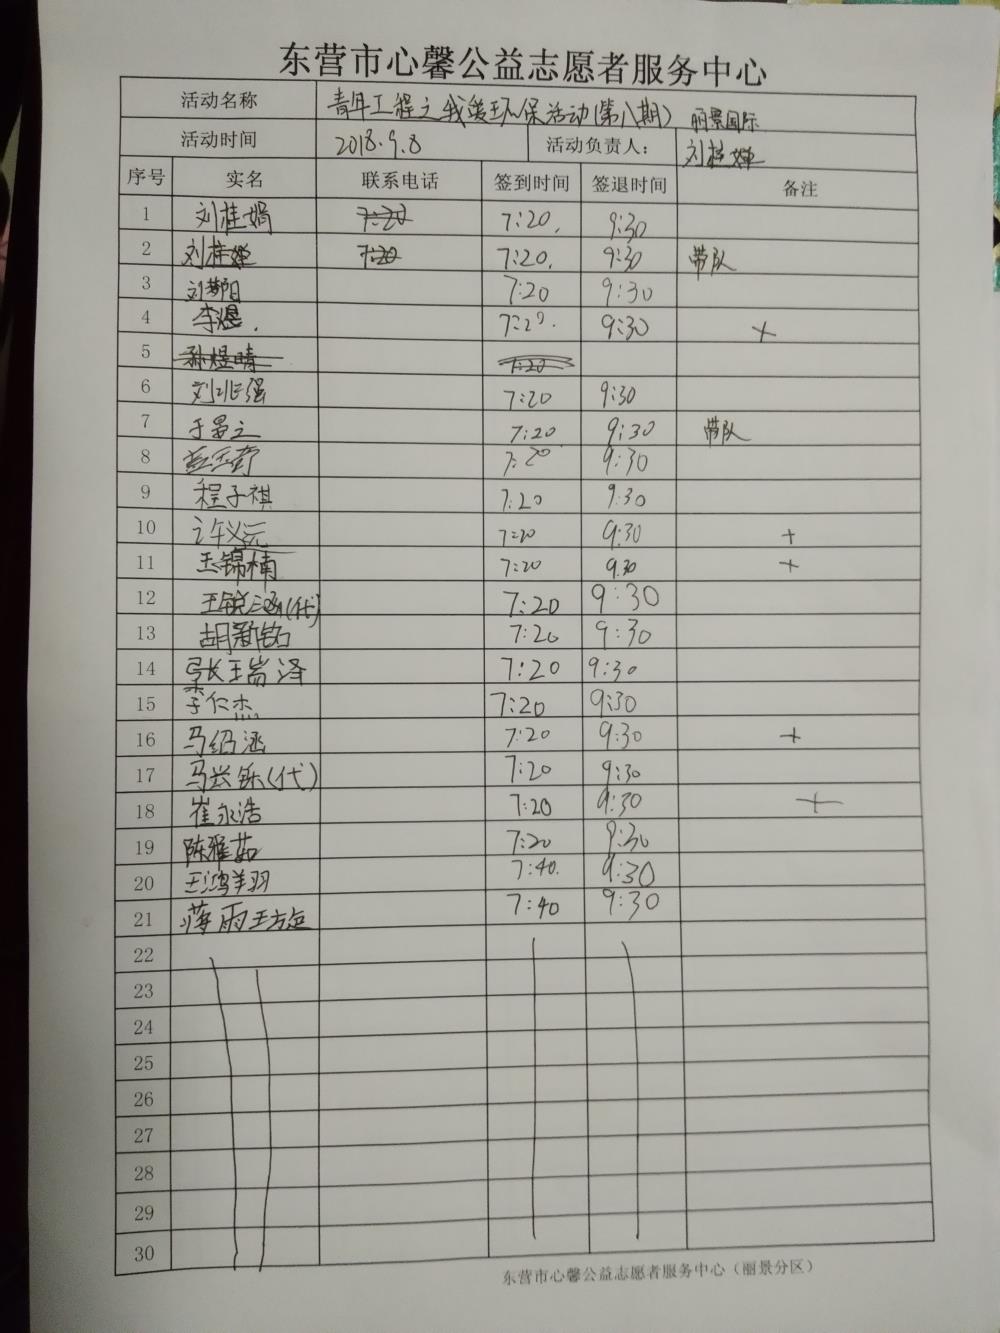 东营市心馨公益志愿者服务中心
活动名称 青年工程之我爱环保活动(第八期) 丽景国际
活动时间 2018.9.8 活动负责人: 刘桂婵
序号 实名 联系电话 签到时间 签退时间 备注
1 刘桂娟 7:20 7:20. 9:30
2 刘桂婵 7:20 7:20. 9:30 带队
3 7:20 9:30
4 李煜. 7:20. 9:30 +
5 孙煜晴 7:20
6 7:20 9:30
7 7:20 9:30 带队
8 7:20 9:30
9 程子祺 7:20 9:30
10 许义元 7:20 9:30 +
11 王锦楠 7:20 9.30 +
12 王锐涵(代) 7:20 9:30
13 胡新铭 7:20 9:30
14 7:20 9:30
15 李仁杰 7:20 9:30
16 马绍涵 7:20 9:30 +
17 马兴铄(代) 7:20 9:30
18 崔永浩 7:20 9:30 +
19 陈雅茹 7:20 9:30
20 王鸿羽 7:40. 9:30
21 蒋雨璇 7:40 9:30
22
23
24
25
26
27
28
29
30
东营市心馨公益志愿者服务中心（丽景分区）